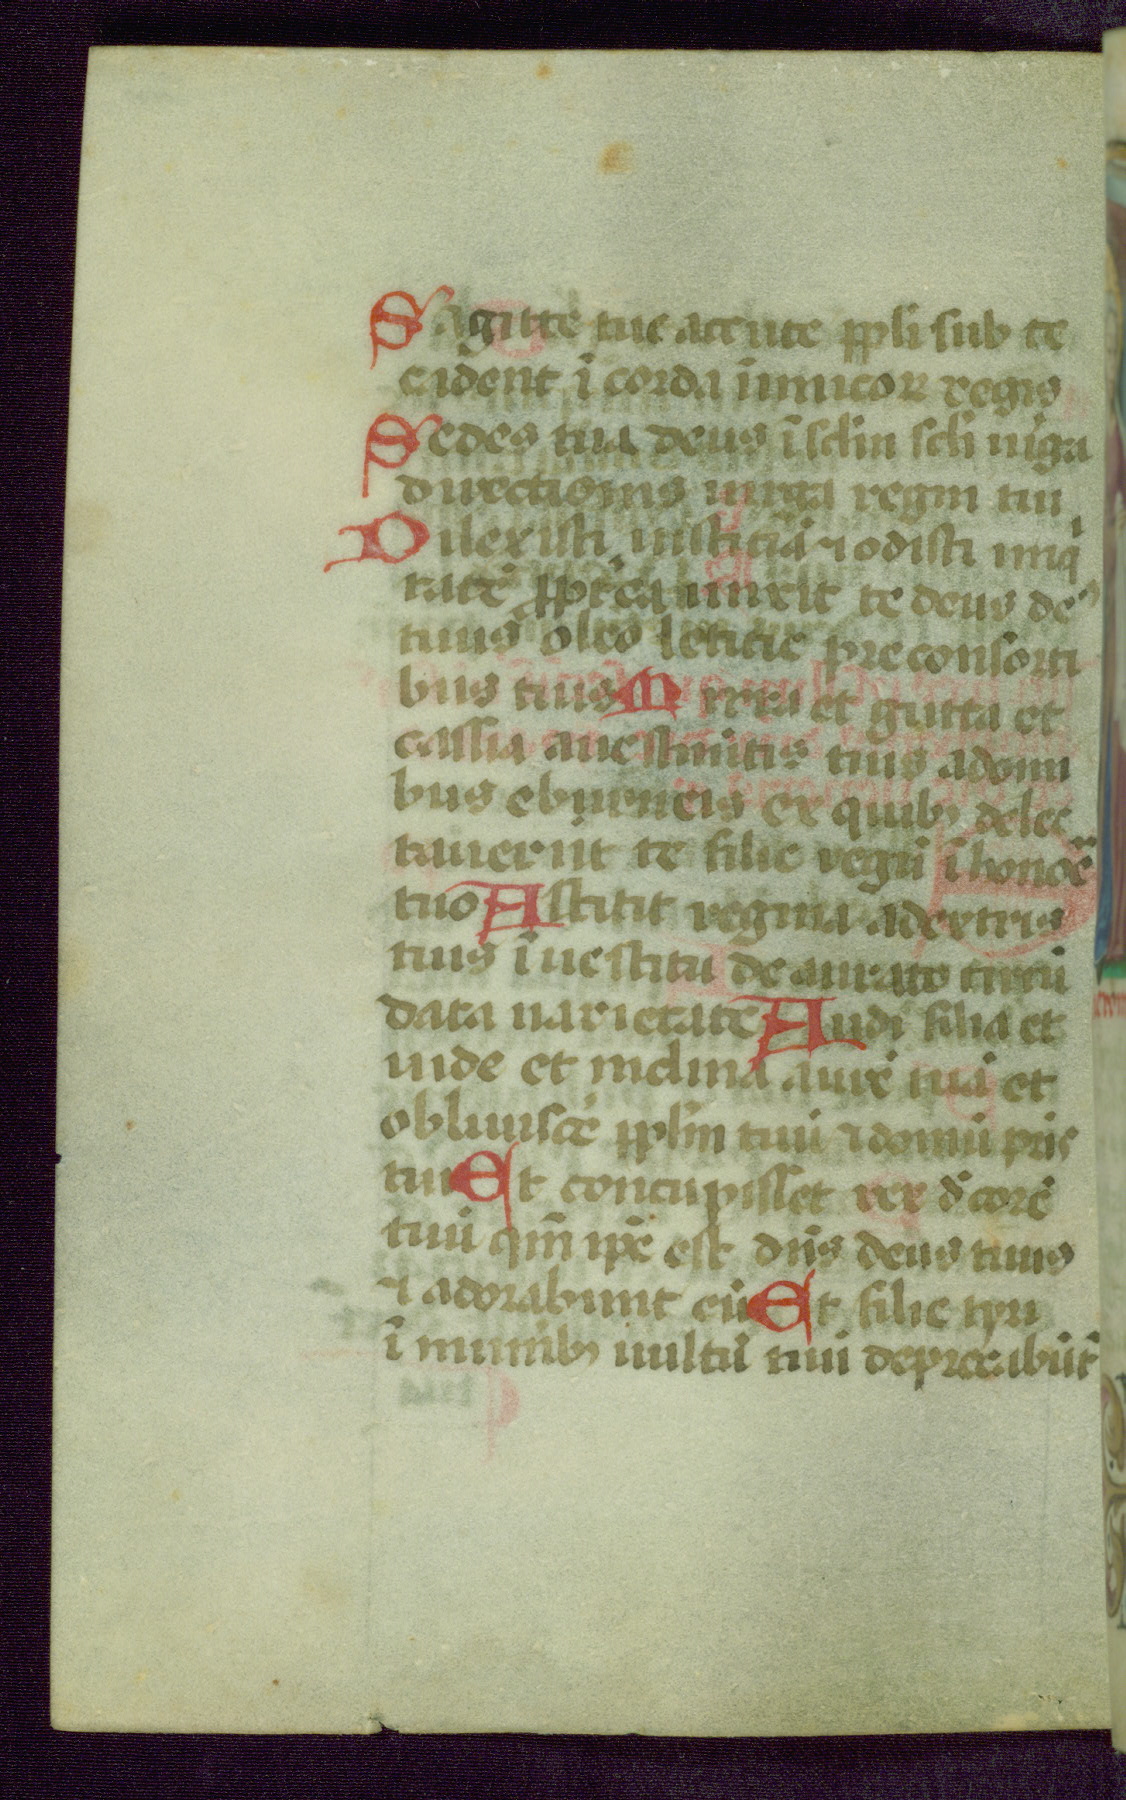 Sagitte tue acute ppli sub te
cident ī corda inimicoꝝ regis
Sedes tua deus ī sclm scli uirga
directionis uirga regni tui
Dilexisti iusticiā ⁊ odisti iniqi
tatē ppr̄ea unxit te deus de⁹
tuus oleo leticie pre consorti
bus tuis Mirra et gutta et
cassia a uestimētis tuis a domi
bus eburneis ex quibꝫ delec
tauerūt te filie regū ī honore
tuo Astitit regina a dextris
tuis ī uestitu de aurato circū
data uarietate Audi filia et
uide et inclina aurē tuā et
obliuiscē pplm tuū ⁊ domū pris
tui Et concupisset rex dcorē
tuū qm̄ ipē est dn̄s deus tuus
⁊ adorabunt eū Et filie tyri
ī munībꝫ uultū tuū deprecabūt